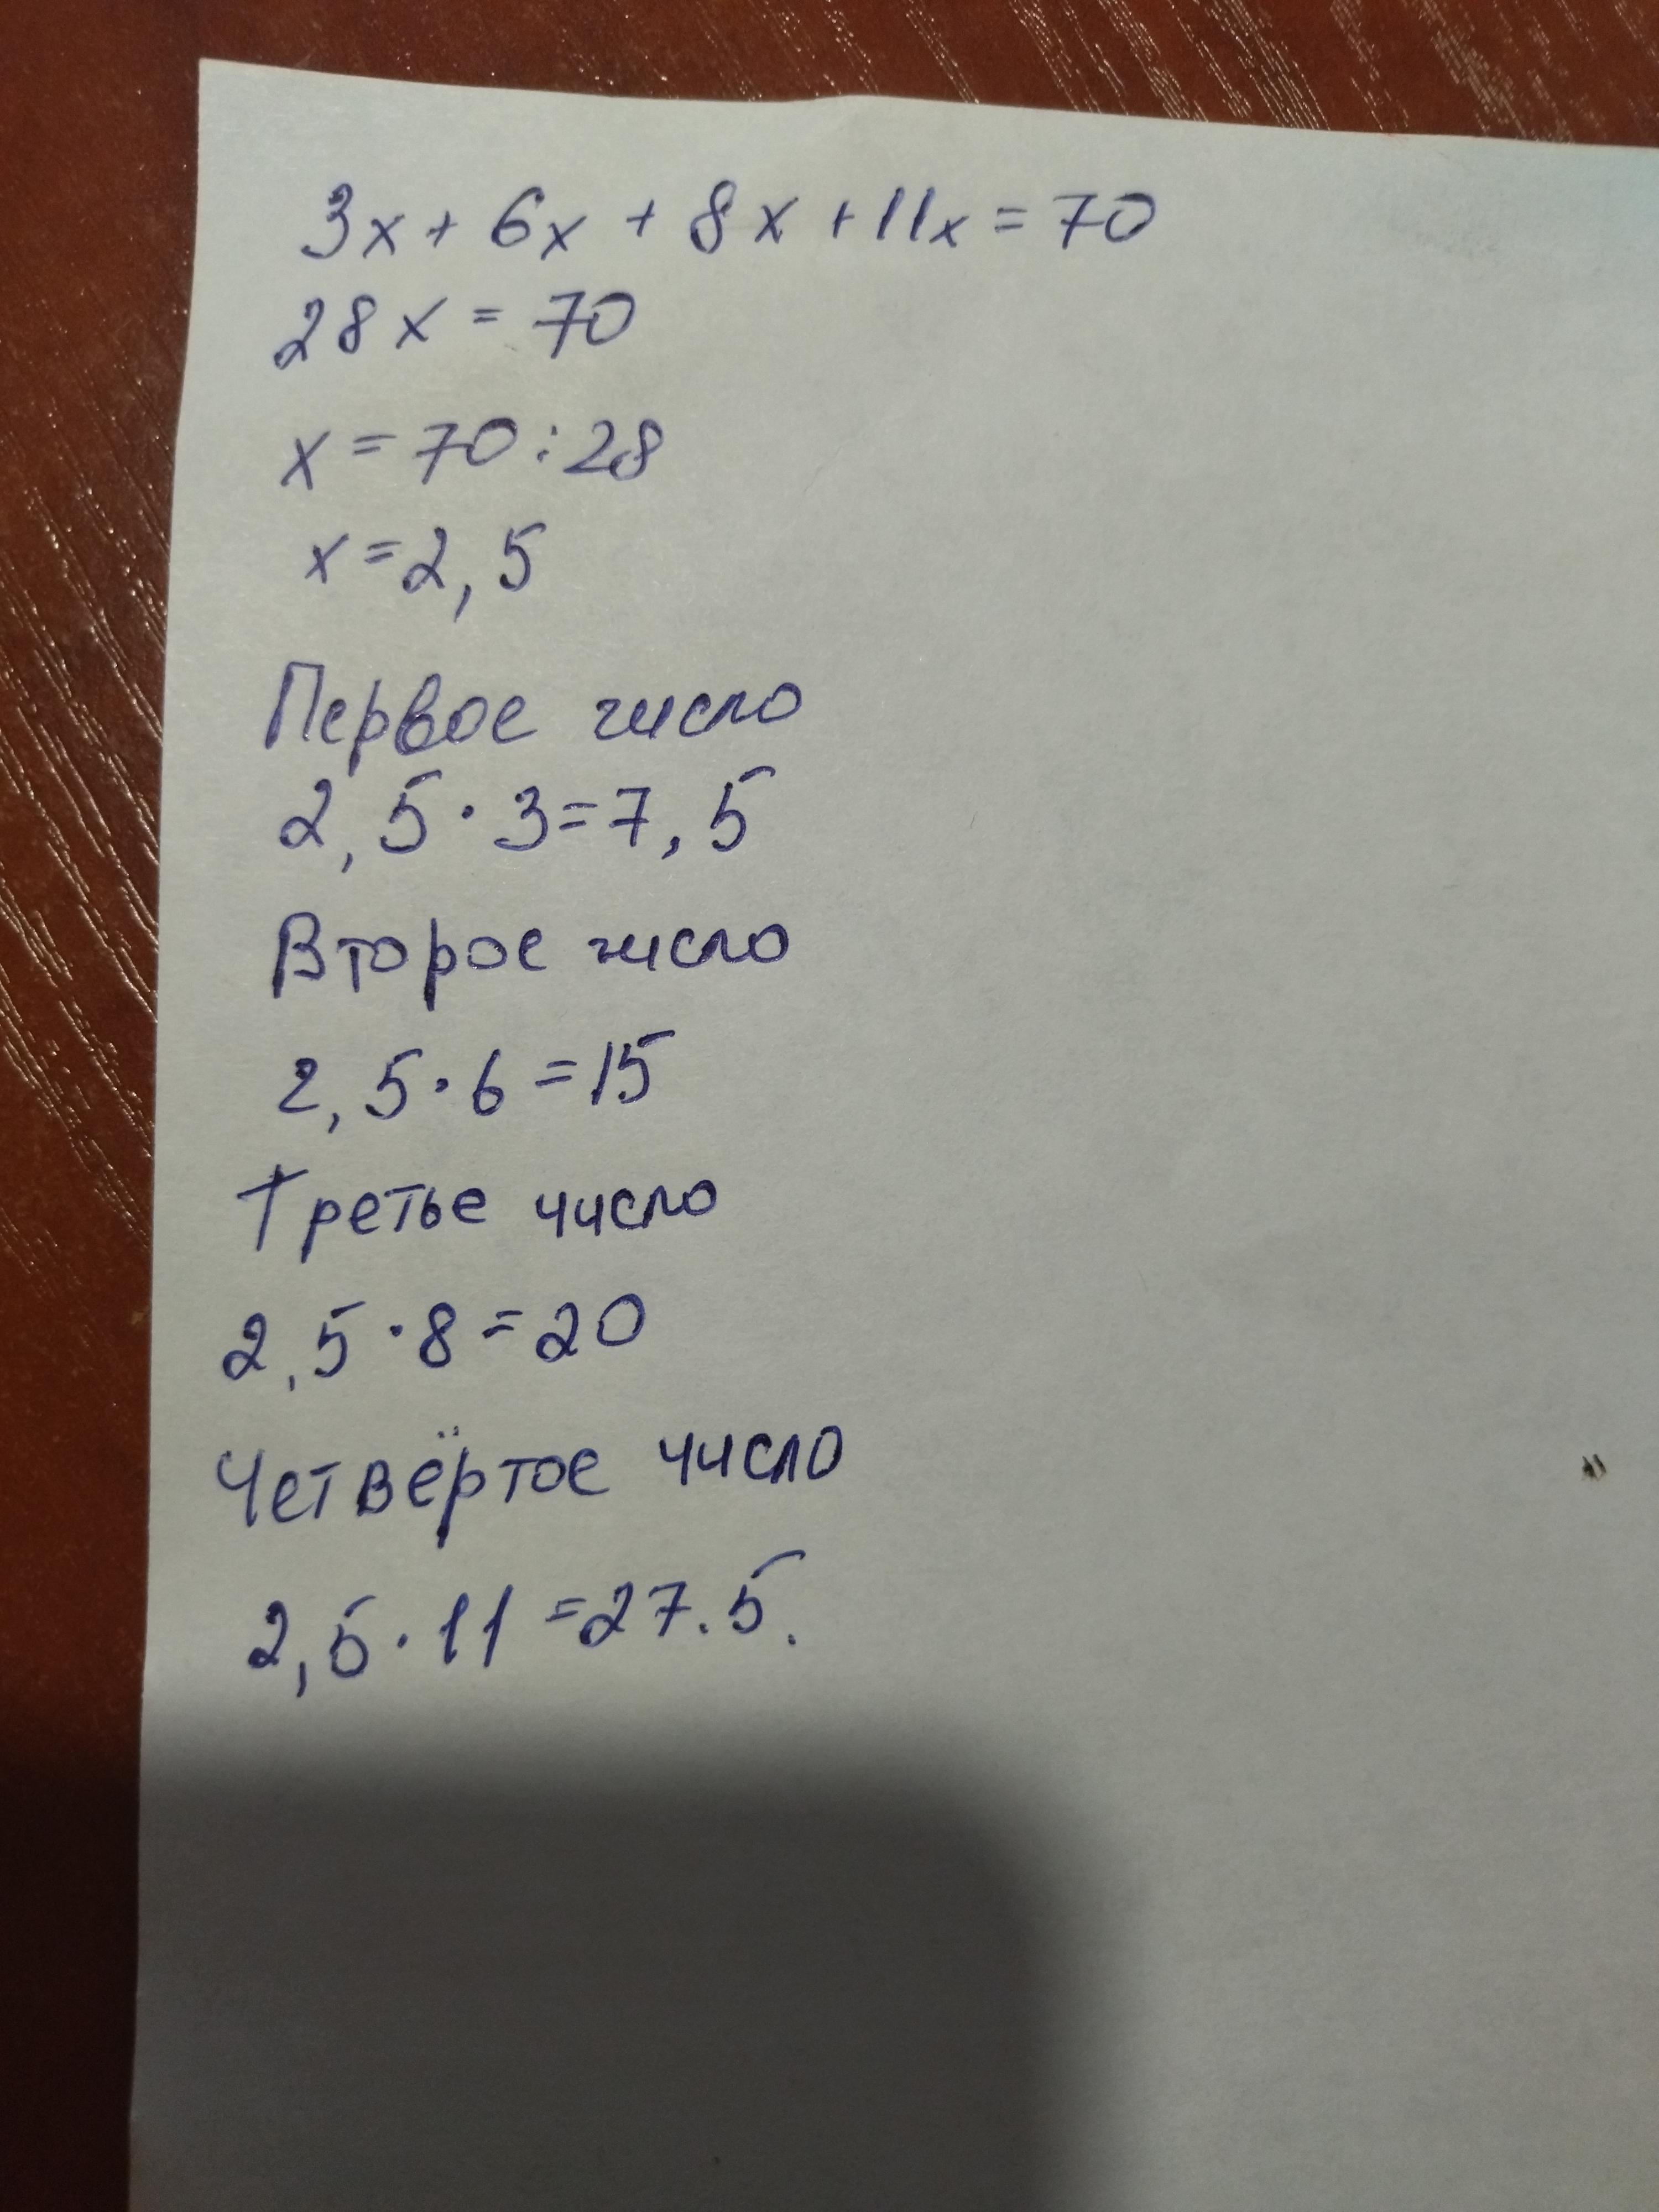 3x + 6x + 8x + 11x = 70
28x = 70
x = 70 : 28
x = 2,5
Первое число
2,5 · 3 = 7,5
Второе число
2,5 · 6 = 15
Третье число
2,5 · 8 = 20
Четвёртое число
2,5 · 11 = 27.5.